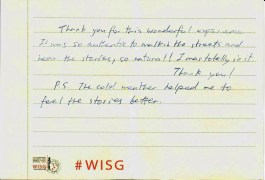 Thank you for this wonderful experience
It was so authentic to walk in the streets and
hear the stories, so natural! I was totally in it.
Thank you!
P.S The cold weather helped me to
feel the stories better.
#WISG